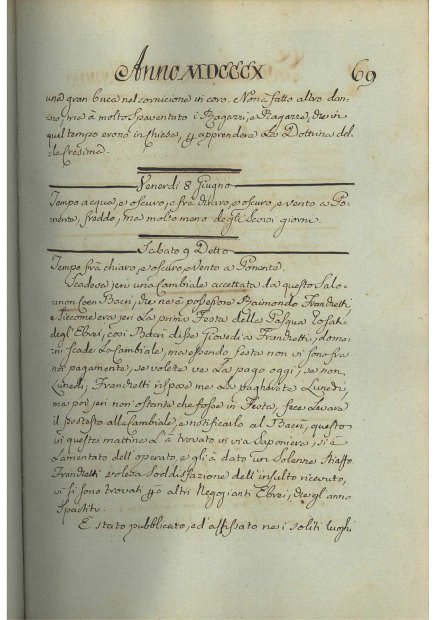 Anno MDCCCX 69
una gran buca nel cornicione in coro. Non à fatto altro dan-
no, ma à molto spaventato i Ragazzi, e Ragazze, che in
quel tempo erono in Chiesa, p apprendere La Dottrina del-
la Cresima.
Venerdì 8 Giugno
Tempo acqua, e oscuro, e frà chiaro, e oscuro, e vento a Po-
nente, freddo, ma molto meno degli scorsi giorni.
Sabato 9 Detto
Tempo frà chiaro, e oscuro, e vento a Ponente.
Scadeva jeri una Cambiale accettata da questo Salo-
mon Coen Bacri, che ne è possessore Raimondo Franchetti,
e siccome era jeri La prima Festa della Pasqua
degl'Ebrei, così Bacri disse Giovedì a Franchetti, doma-
ni scade La Cambiale, ma essendo festa non si sono fra
noi pagamento, se volete ve La pago oggi, se non
Lunedì; Franchetti rispose me La pagherete Lunedì,
ma poi jeri non ostante che fosse in Festa, fece Levare
il protesto alla Cambiale, e notificarlo al Bacri, questo
in questa mattina L'à trovato in via Saponiera, si è
Lamentato dell'operato, e gli à dato un Solenne Schiaffo
Franchetti voleva Soddisfazione dell'insulto ricevuto,
vi si sono trovati p altri Negozianti Ebrei, che gli anno
Spartiti.
E stato pubblicato, ed affissato nei soliti Luoghi